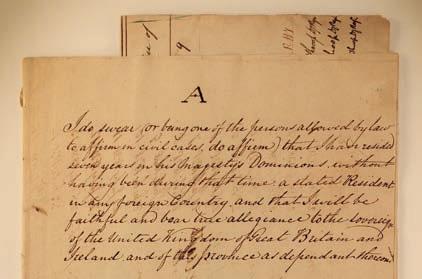 A
I do swear (or being one of the persons allowed by law
to affirm in civil cases, do affirm) that I have resided
seven years in his Majesty's Dominions without
having been during that time a stated Resident
in any foreign Country, and that I will be
faithful and bear true allegiance to the sovereign
of the United Kingdom of Great Britain and
Ireland and of this Province as dependant thereon